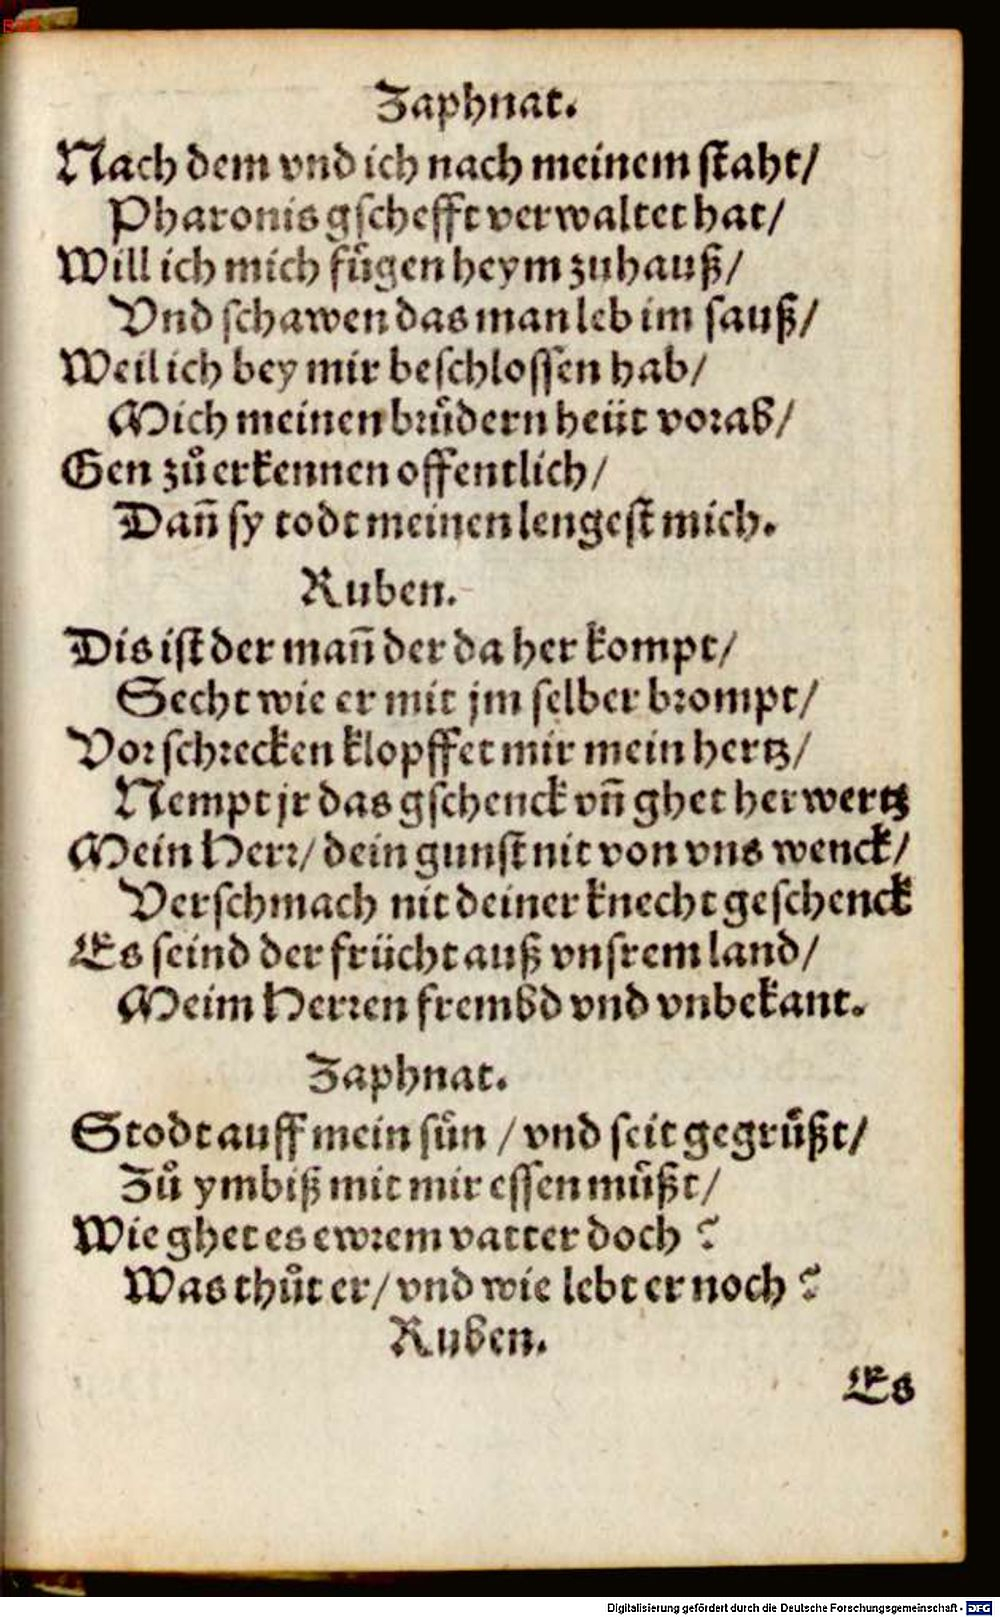 Zaphnat.
Nach dem vnd ich nach meinem staht/
Pharonis gschefft verwaltet hat/
Will ich mich fuͤgen heym zuhauß/
Vnd schawen das man leb im sauß/
Weil ich bey mir beschlossen hab/
Mich meinen bruͤdern heüt vorab/
Gen zuͦ erkennen offentlich/
Dañ sy todt meinen lengest mich.
Ruben.
Dis ist der mañ der da her kompt/
Secht wie er mit jm selber brompt/
Vor schrecken klopffet mir mein hertz/
Nempt jr das gschenck vñ ghet herwertz
Mein Herr/ dein gunst nit von vns wenck/
Verschmach nit deiner knecht geschenck
Es seind der frücht auß vnsrem land/
Meim Herren frembd vnd vnbekant.
Zaphnat.
Stodt auff mein suͤn / vnd seit gegruͤßt/
Zuͦ ymbiß mit mir essen muͤßt/
Wie ghet es ewrem vatter doch ?
Was thuͦt er/ vnd wie lebt er noch ?
Ruben.
Es
Digitalisierung gefördert durch die Deutsche Forschungsgemeinschaft - DFG